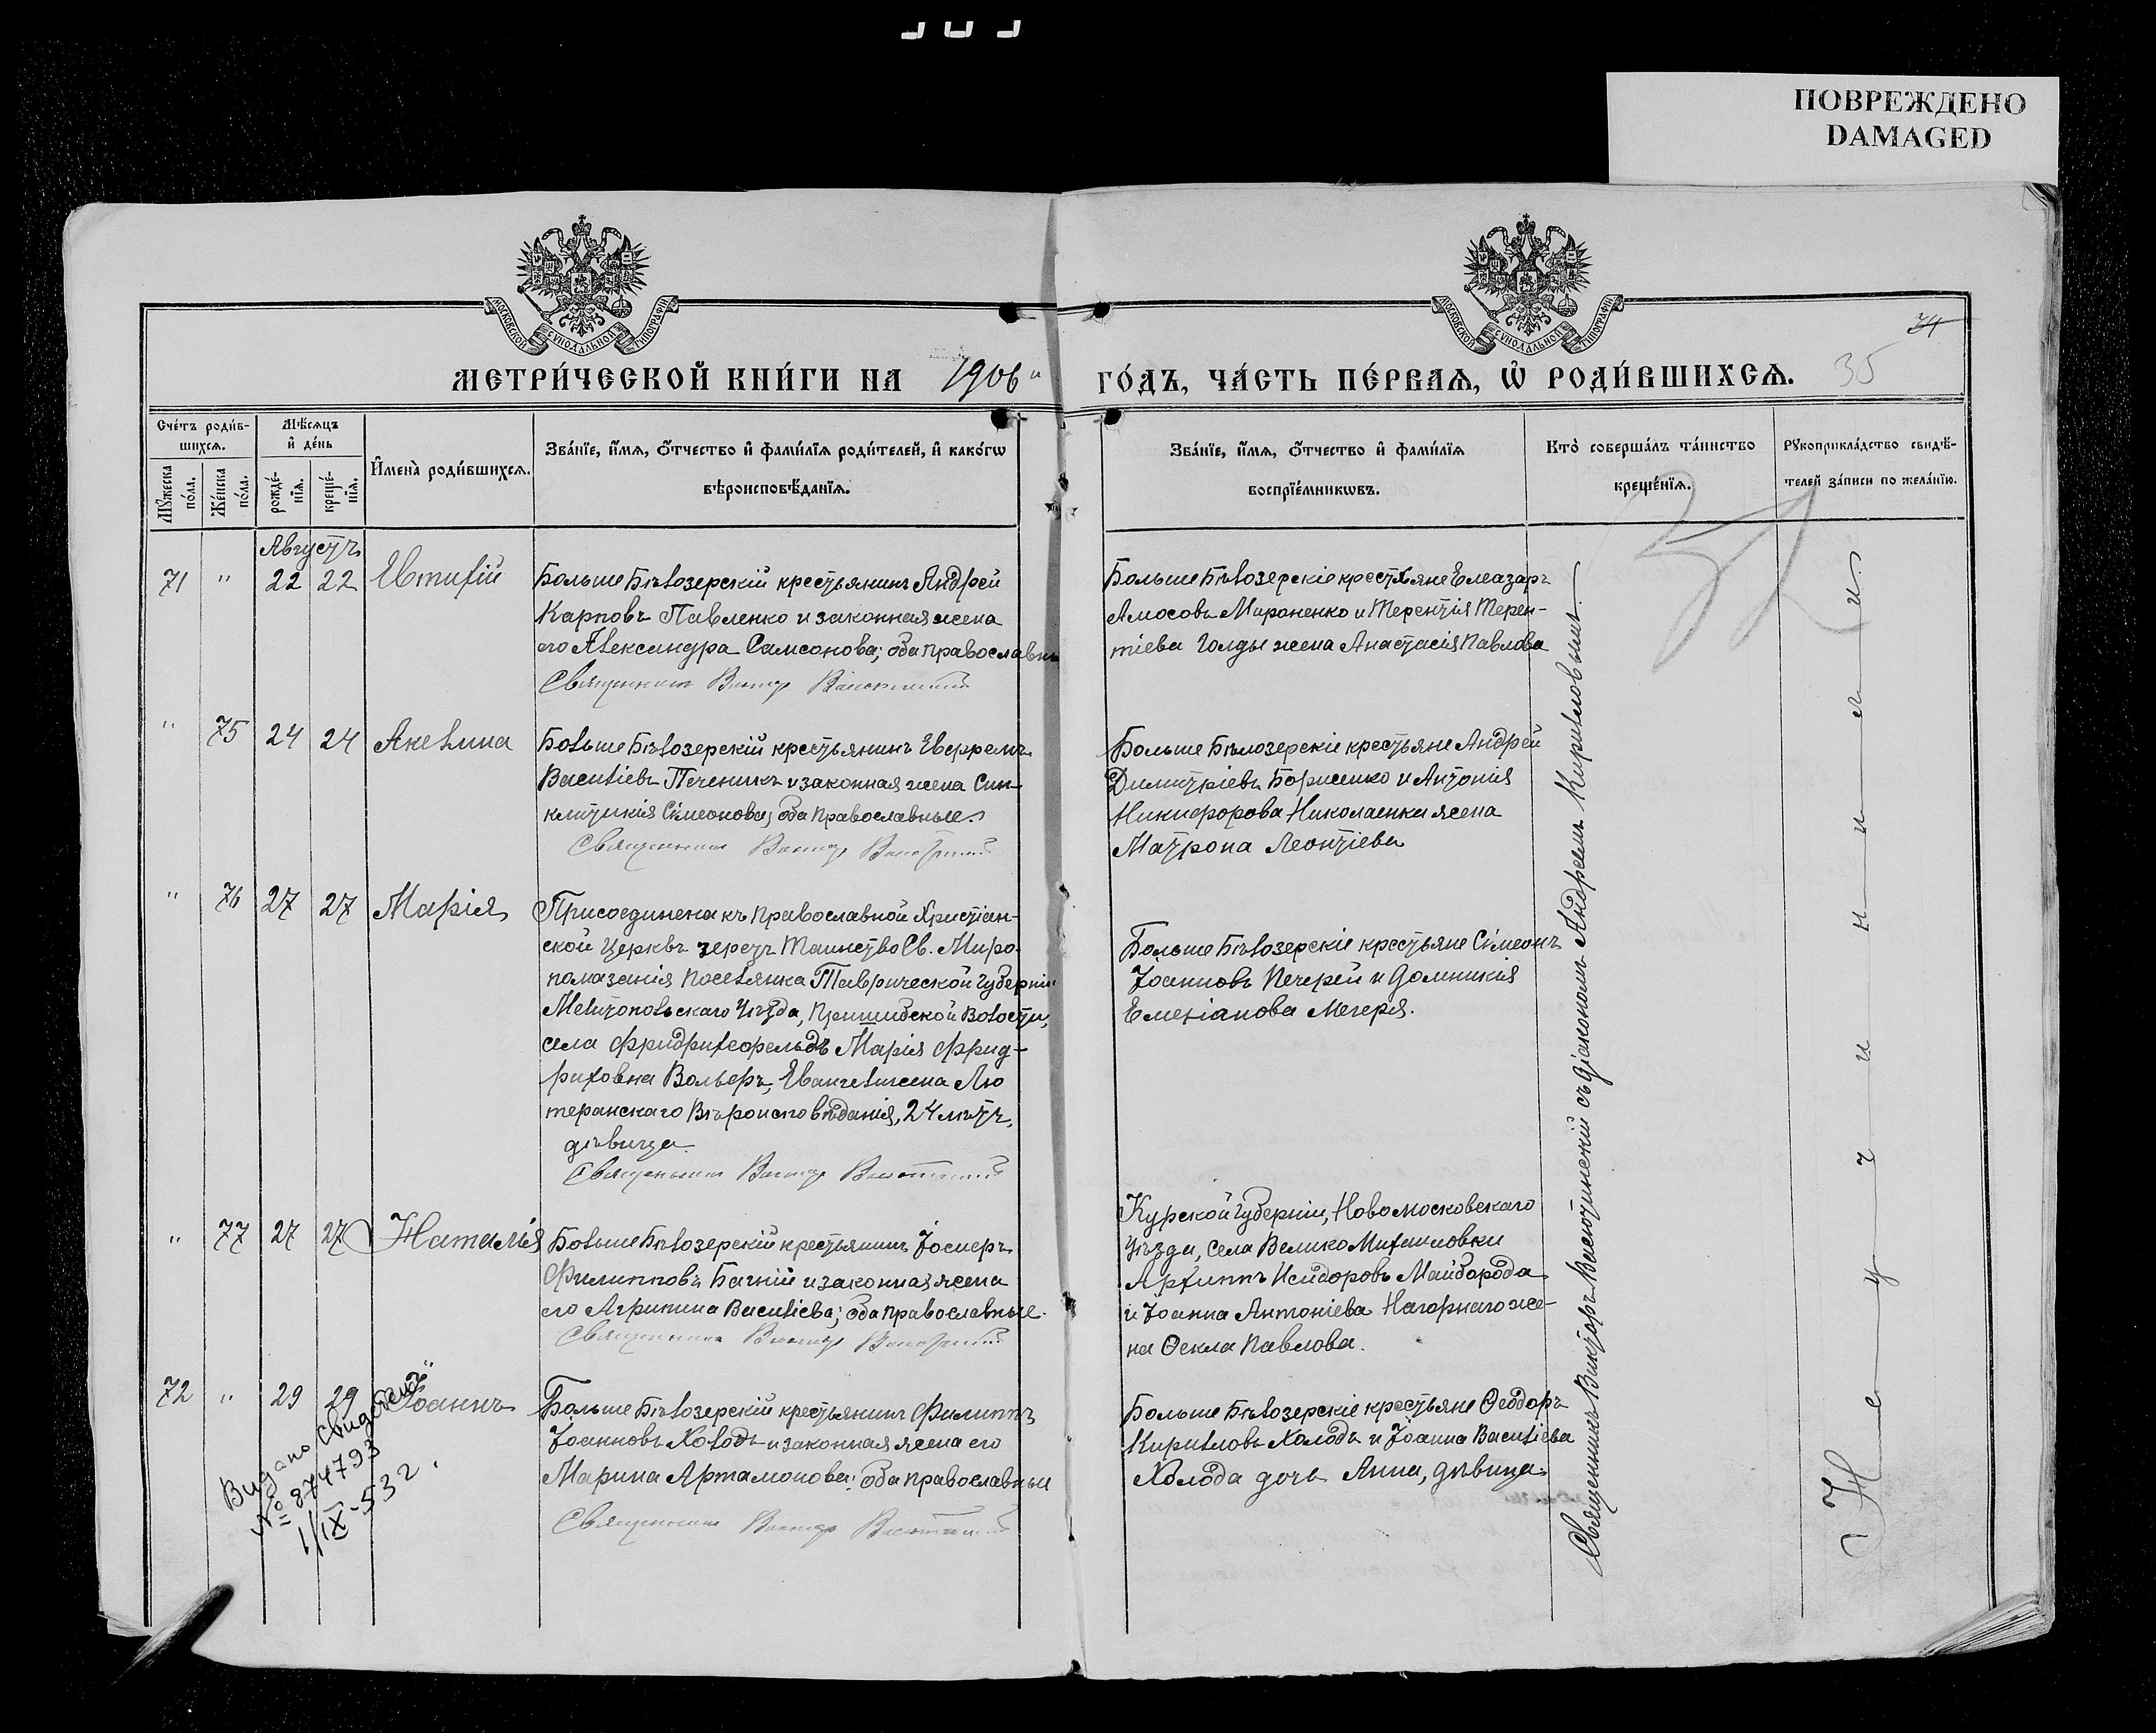 ПОВРЕЖДЕНО
DAMAGED
МОСКОВСКОЙ СѴНОДАЛЬНОЙ ТИПОГРАФІИ
МОСКОВСКОЙ СѴНОДАЛЬНОЙ ТИПОГРАФІИ
МЕТРИ́ЧЕСКОЙ КНИ́ГИ НА 1906 ГО́ДЪ, ЧА́СТЬ ПЕ́РВАѦ, Ѡ҆ РОДИ́ВШИХСѦ.
74
35
Сче́тъ роди́в-
шихсѧ.
Мѣ́сѧцъ
и҆ де́нь
Мꙋ́жеска
по́ла.
Же́нска
по́ла.
рожде́-
нїѧ.
креще́-
нїѧ.
И҆мена̀ роди́вшихсѧ.
Зва́нїе, и҆́мѧ, ѻ҆́тчество и҆ фами́лїѧ роди́телей, и҆ како́гѡ
вѣроисповѣ́данїѧ.
Зва́нїе, и҆́мѧ, ѻ҆́тчество и҆ фами́лїѧ
воспрїе́мникѡвъ.
Кто̀ соверша́лъ та́инство
креще́нїѧ.
Рꙋкоприкла́дство свидѣ́-
телей за́писи по жела́нїю.
Августъ
71 " 22 22 Евтихій
Больше Бѣлозерскій крестьянинъ Андрей
Карповъ Павленко и законная жена
его Александра Самсонова; оба православны
Священникъ Виктор
Больше Бѣлозерскіе крестьяне Елеазаръ
Амосовъ Мироненко и Терентія Терен-
тіева Голды жена Анастасія Павлова
" 75 24 24 Акелина
Больше Бѣлозерскій крестьянинъ Евфремъ
Василіевъ Печеникъ и законная жена Син-
клитикія Сімеонова; оба православные.
Священникъ Виктор
Больше Бѣлозерскіе крестьяне Андрей
Димитріевъ Борисенко и Антонія
Никифорова Николаенки жена
Матрона Леонтіева
" 76 27 27 Марія
Присоединена къ православной Христіан-
ской Церквѣ черезъ Таинство Св. Миро-
помазанія поселянка Таврической губерніи
Мелитопольскаго Уѣзда, Пришибской Волости,
села Фридрихсфельдъ Марія Фрид-
риховна Вольфъ, Евангелическа Лю
теранскаго Вѣроисповѣданія, 24 лѣтъ,
дѣвица
Священникъ Виктор
Больше Бѣлозерскіе крестьяне Сімеонъ
Іоанновъ Печерей и Домникія
Емеліанова Мегеря.
" 77 27 27 Наталія
Больше Бѣлозерскій крестьянинъ Іосифъ
Филипповъ Багній и законная жена
его Агрипина Василіева; оба православные.
Священникъ Виктор
Курской губерніи, Новомосковскаго
Уѣзда, села ВеликоМихаиловки
Архиппъ Исидоровъ Майборода
и Іоанна Антоніева Нагорнаго же-
на Ѳекла Павлова.
72 " 29 29 Іоаннъ
Больше Бѣлозерскій крестьянинъ Филиппъ
Іоанновъ Холодъ и законная жена его
Марина Артамонова; оба православные
Священникъ Виктор
Больше Бѣлозерскіе крестьяне Ѳеодоръ
Кирилловъ Холодъ и Іоанна Василіева
Холода дочь Анна, дѣвица.
Видано Свидоство
№ 874793
1/IX-532.
Священникъ Викторъ съ діакономъ Андреемъ Кирилловымъ.